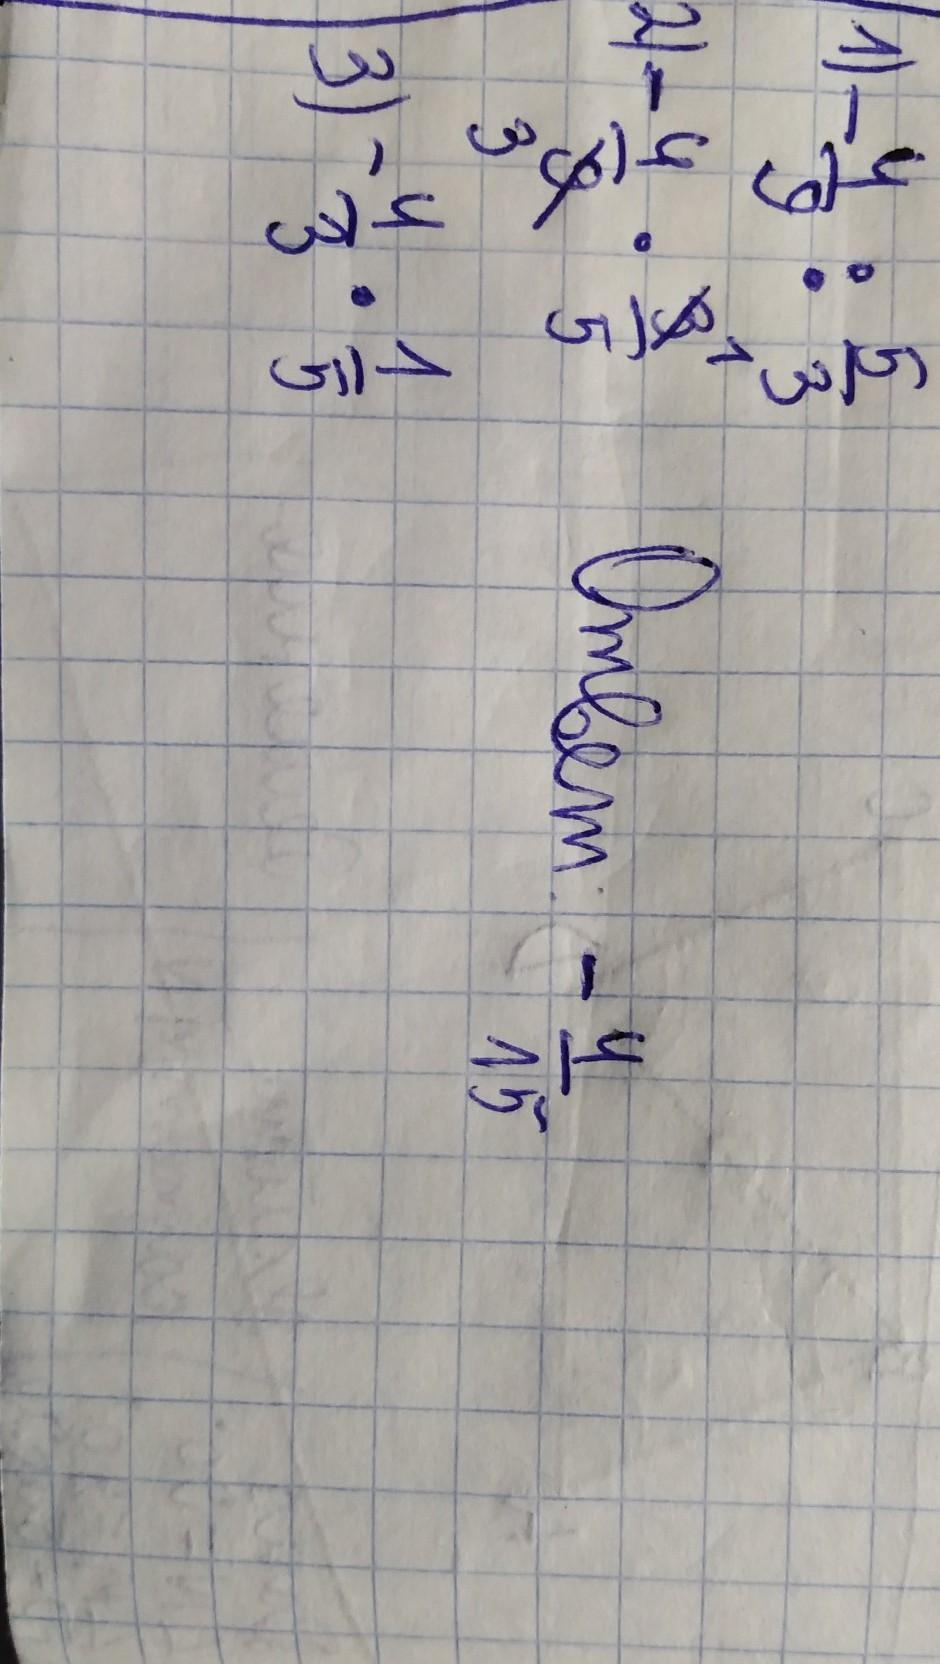 1) - 4/9 : 5/3
2) - 4/9 3 · 3/5 1
3) - 4/3 · 1/5
Ответ: - 4/15